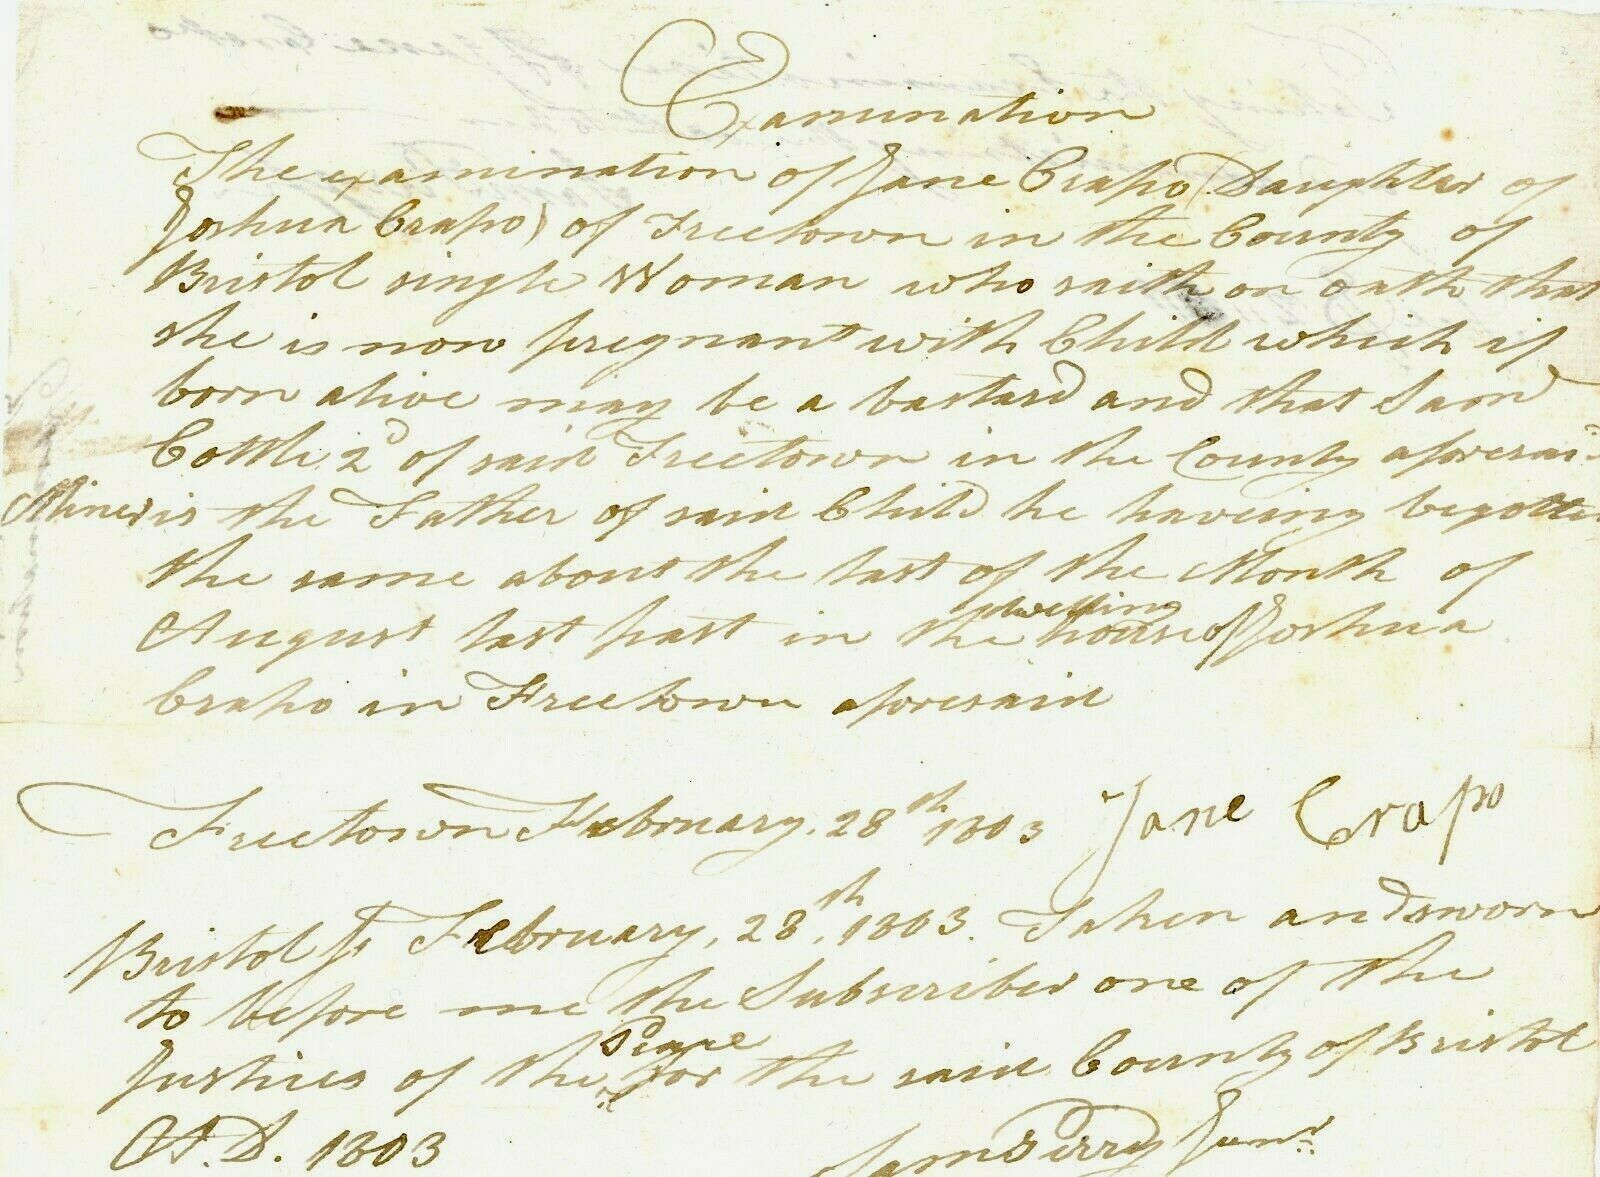 Examination
The examination of Jane Crapo (Daughter of
Joshua Crapo) of Freetown in the County of
Bristol single Woman who saith on oath that
she is now pregnant with Child which if
born alive may be a bastard and that Sam
Cottle 2d of said Freetown in the County aforesaid
Miner is the Father of said Child he haveing begotten
the same about the last of the Month of
August last past in the dwelling house of Joshua
Crapo in Freetown aforesaid
Freetown February. 28th 1803 Jane Crapo
Bristol ss February, 28th, 1803. Taken and sworn
to before me the Subscriber one of the
Justices of the Peace for the said County of Bristol
A.D. 1803
Sam Perry Junr